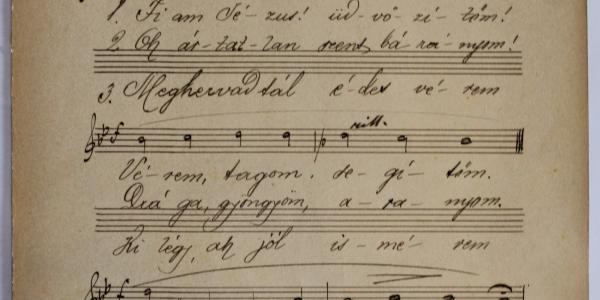 1. Fi am Jé- zus! üd- vö- zí- tőm!
2. Oh ár- tat- lan szent bá- rá- nyom!
3. Meghervadtál é- des vé- rem
ritt.
Vé- rem, tagom. se- gí- tőm.
Drá ga, gyöngyöm, a- ra- nyom.
Ki légy, ah jól is- mé- rem